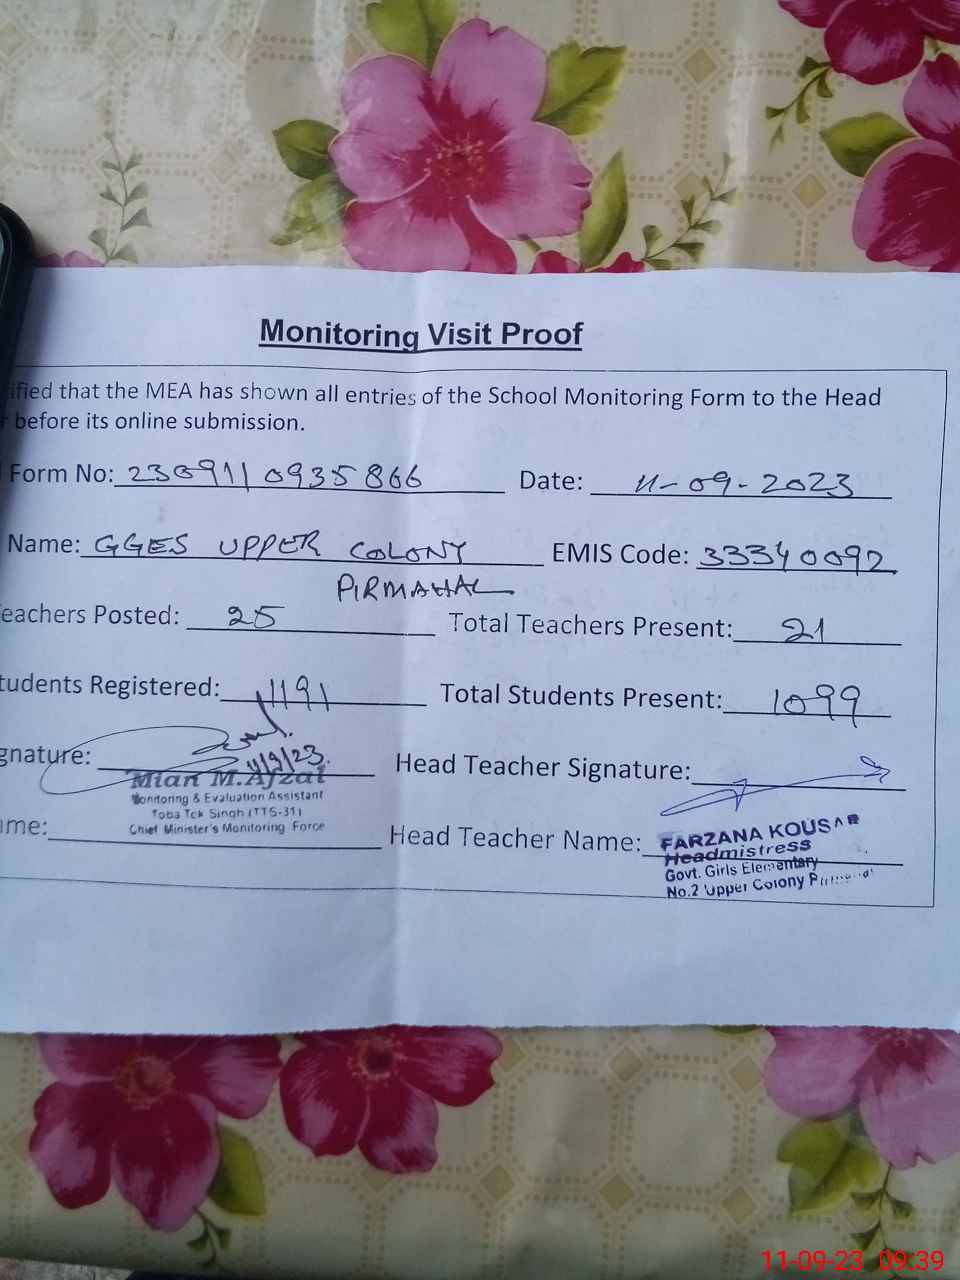 Monitoring Visit Proof
ified that the MEA has shown all entries of the School Monitoring Form to the Head
r before its online submission.
Form No: 230911 0935866 Date: 11-09-2023
Name: GGES UPPER COLONY EMIS Code: 33340092
PIRMAHAL
eachers Posted: 25 Total Teachers Present: 21
tudents Registered: 1191 Total Students Present: 1099
gnature: Head Teacher Signature:
11/9/23
Mian M.Afzal
Monitoring & Evaluation Assistant
Toba Tek Singh (TTS-31)
Chief Minister's Monitoring Force
ame: Head Teacher Name: FARZANA KOUSAR
Headmistress
Govt. Girls Elementary
No.2 Upper Colony
11-09-23 09:39